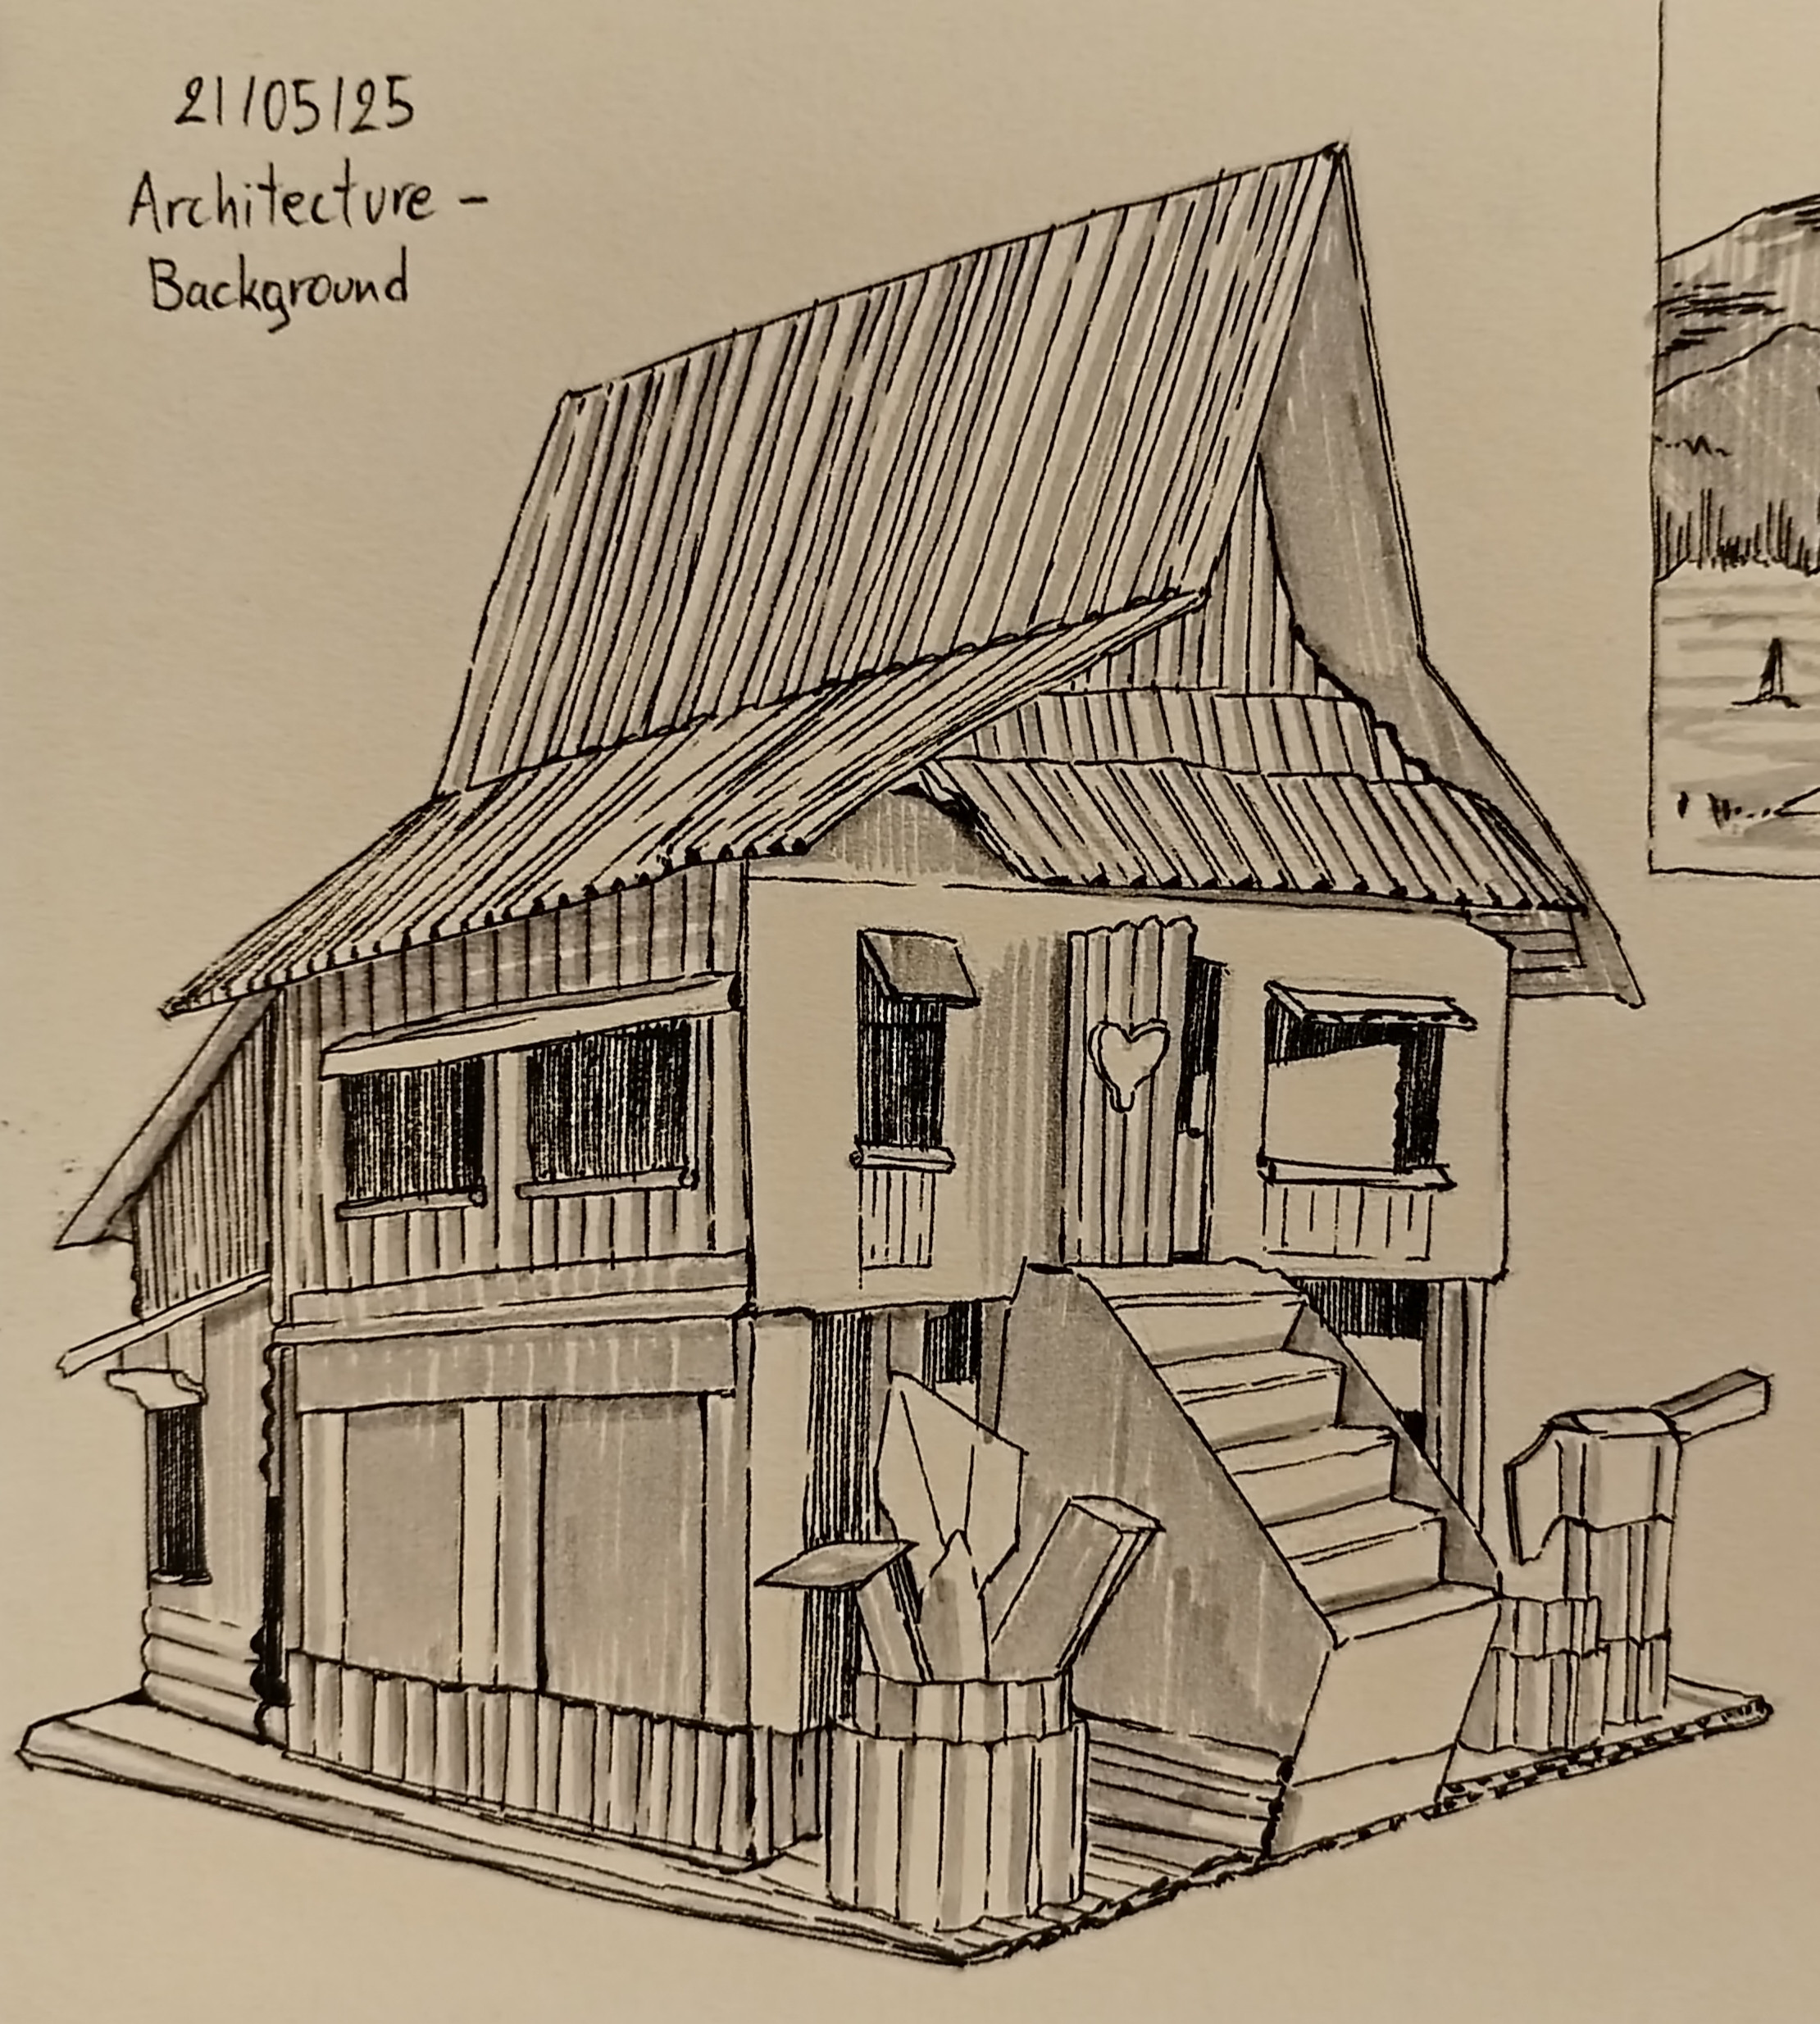 21/05/25
Architecture -
Background